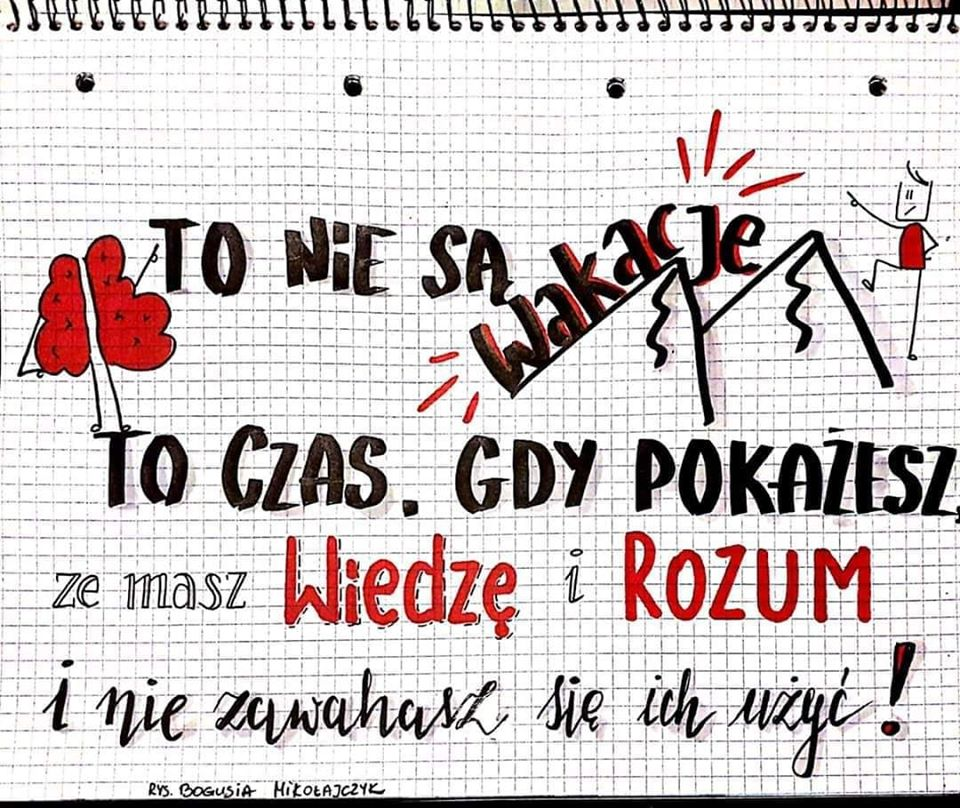 TO NiE SĄ wakacje
TO CZAS. GDY POKAŻESZ,
ze masz Wiedzę i ROZUM
i nie zawahasz się ich użyć!
RYS. BOGUSIA MIKOŁAJCZYK